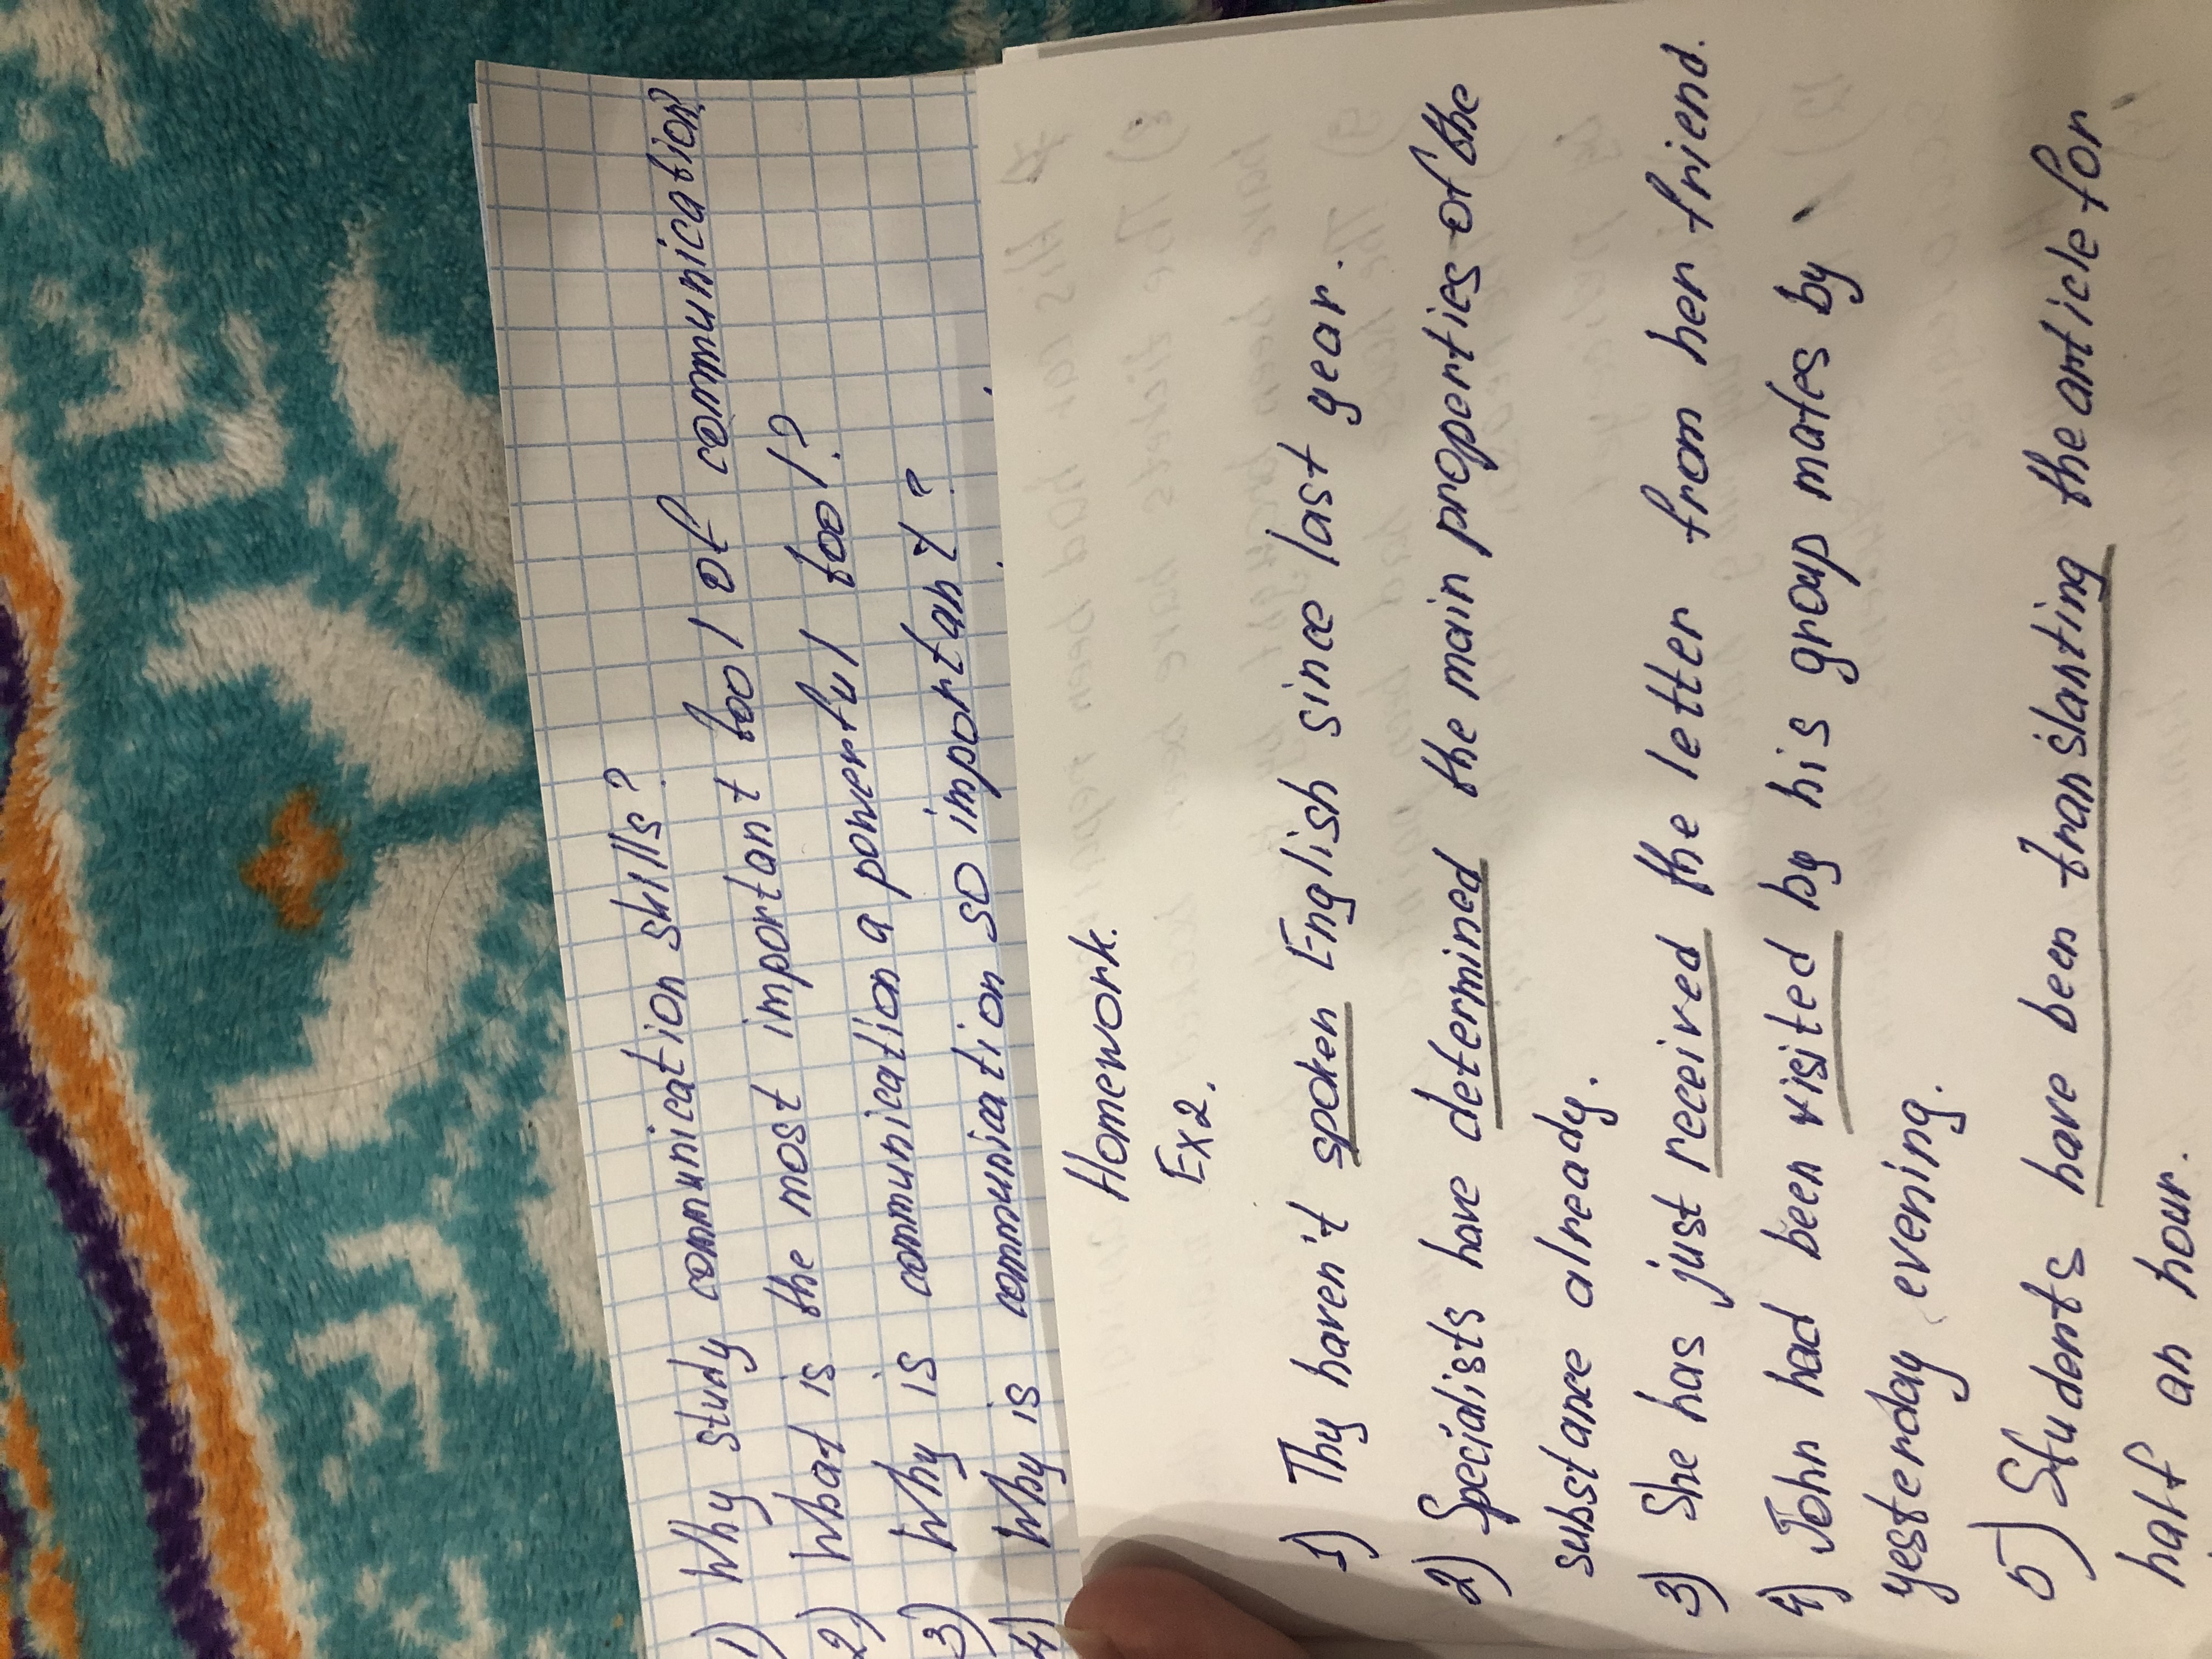 1) Why study communication skills?
2) What is the most important tool of communication?
3) Why is communication a powerful tool?
4) Why is communication so important?
Homework.
Ex2.
1) Thy haven't spoken English since last year.
2) Specialists have determined the main properties of the
substance already.
3) She has just received the letter from her friend.
4) John had been visited by his group mates by
yesterday evening.
5) Students have been translanting the article for
half an hour.